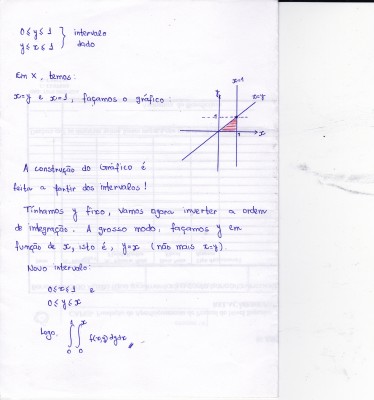 0 ≤ y ≤ 1 } intervalo
y ≤ x ≤ 1 } dado
Em x, temos:
x=y e x=1, façamos o gráfico:
x=1
y
x=y
1
1
x
A construção do Gráfico é
feita a partir dos intervalos!
Tínhamos y fixo, vamos agora inverter a ordem
de integração. A grosso modo, façamos y em
função de x, isto é, y=x (não mais x=y).
Novo intervalo:
0 ≤ x ≤ 1 e
0 ≤ y ≤ x
Logo, ∫₀¹ ∫₀ˣ f(x,y) dy dx